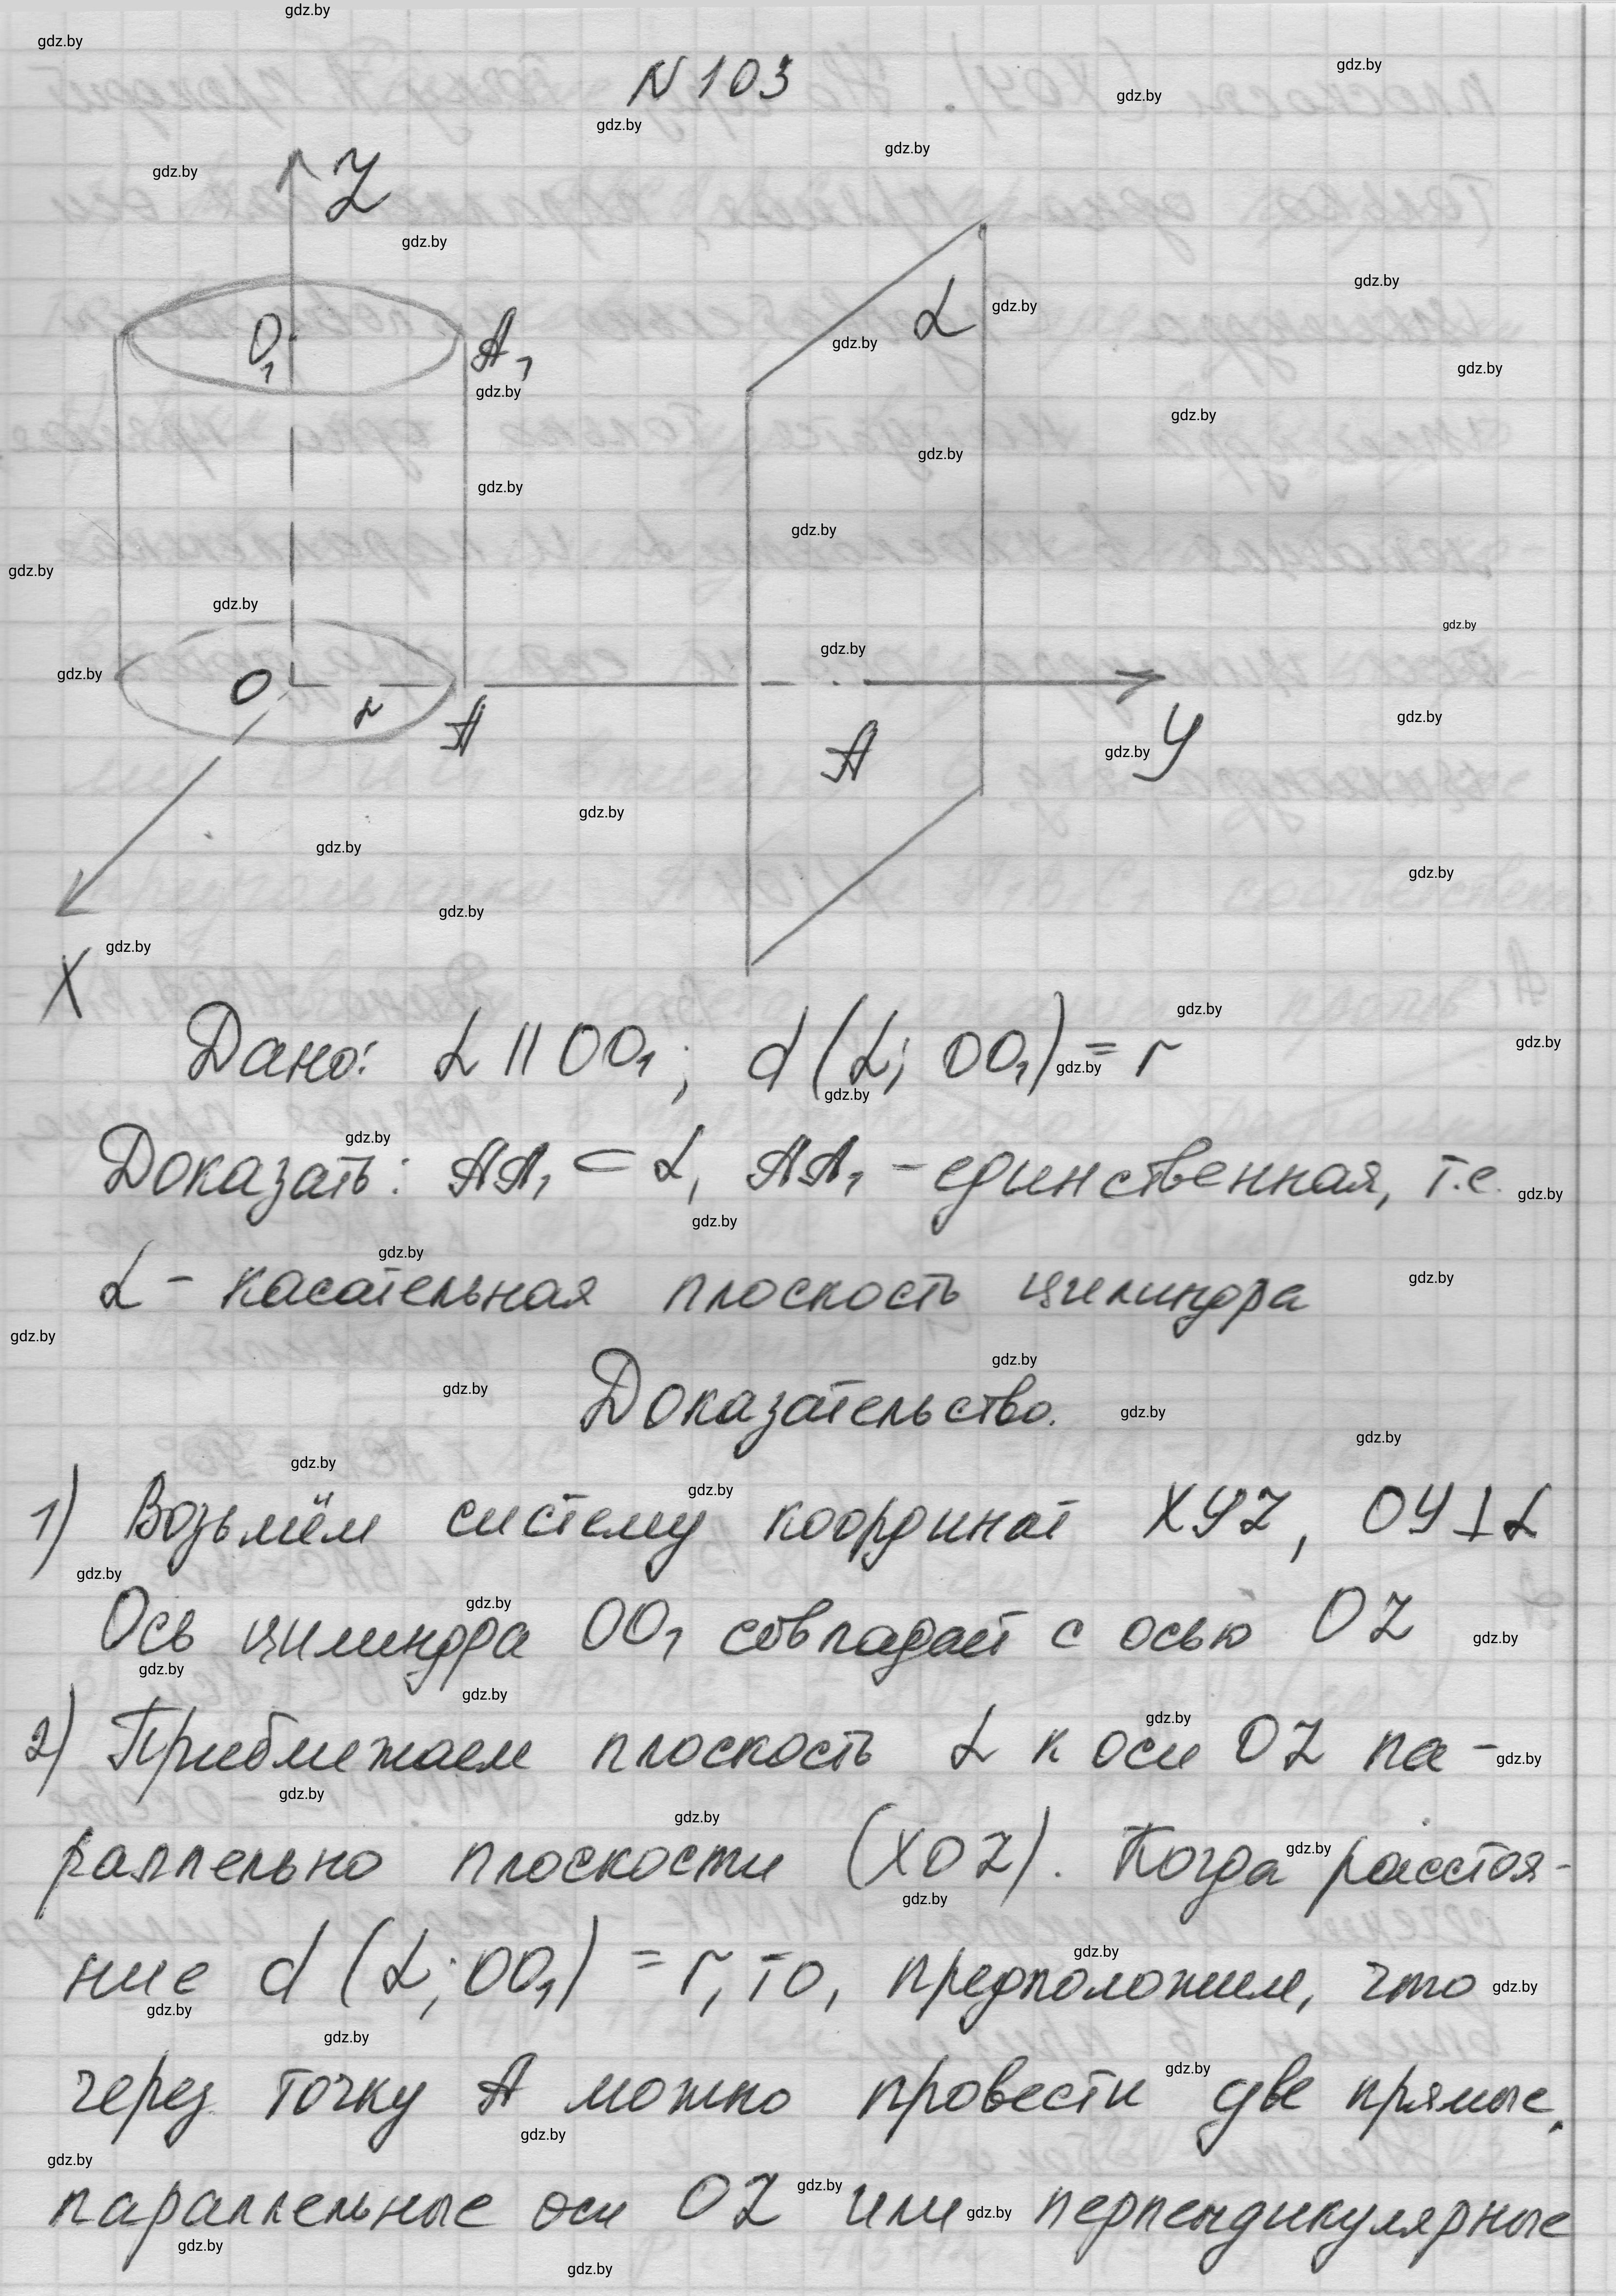 N 103
Z
O₁
A₁
α
O
r
A
A
У
X
Дано: α || OO₁; d(α; OO₁) = r
Доказать: AA₁ ⊂ α, AA₁ - единственная, т.е.
α - касательная плоскость цилиндра
Доказательство.
1) Возьмём систему координат ХУZ, ОУ⊥α
Ось цилиндра OO₁ совпадает с осью OZ
2) Приближаем плоскость α к оси OZ па-
раллельно плоскости (XOZ). Когда расстоя-
ние d(α; OO₁) = r, то, предположим, что
через точку А можно провести две прямые,
параллельные оси OZ или перпендикулярные
gdz.by